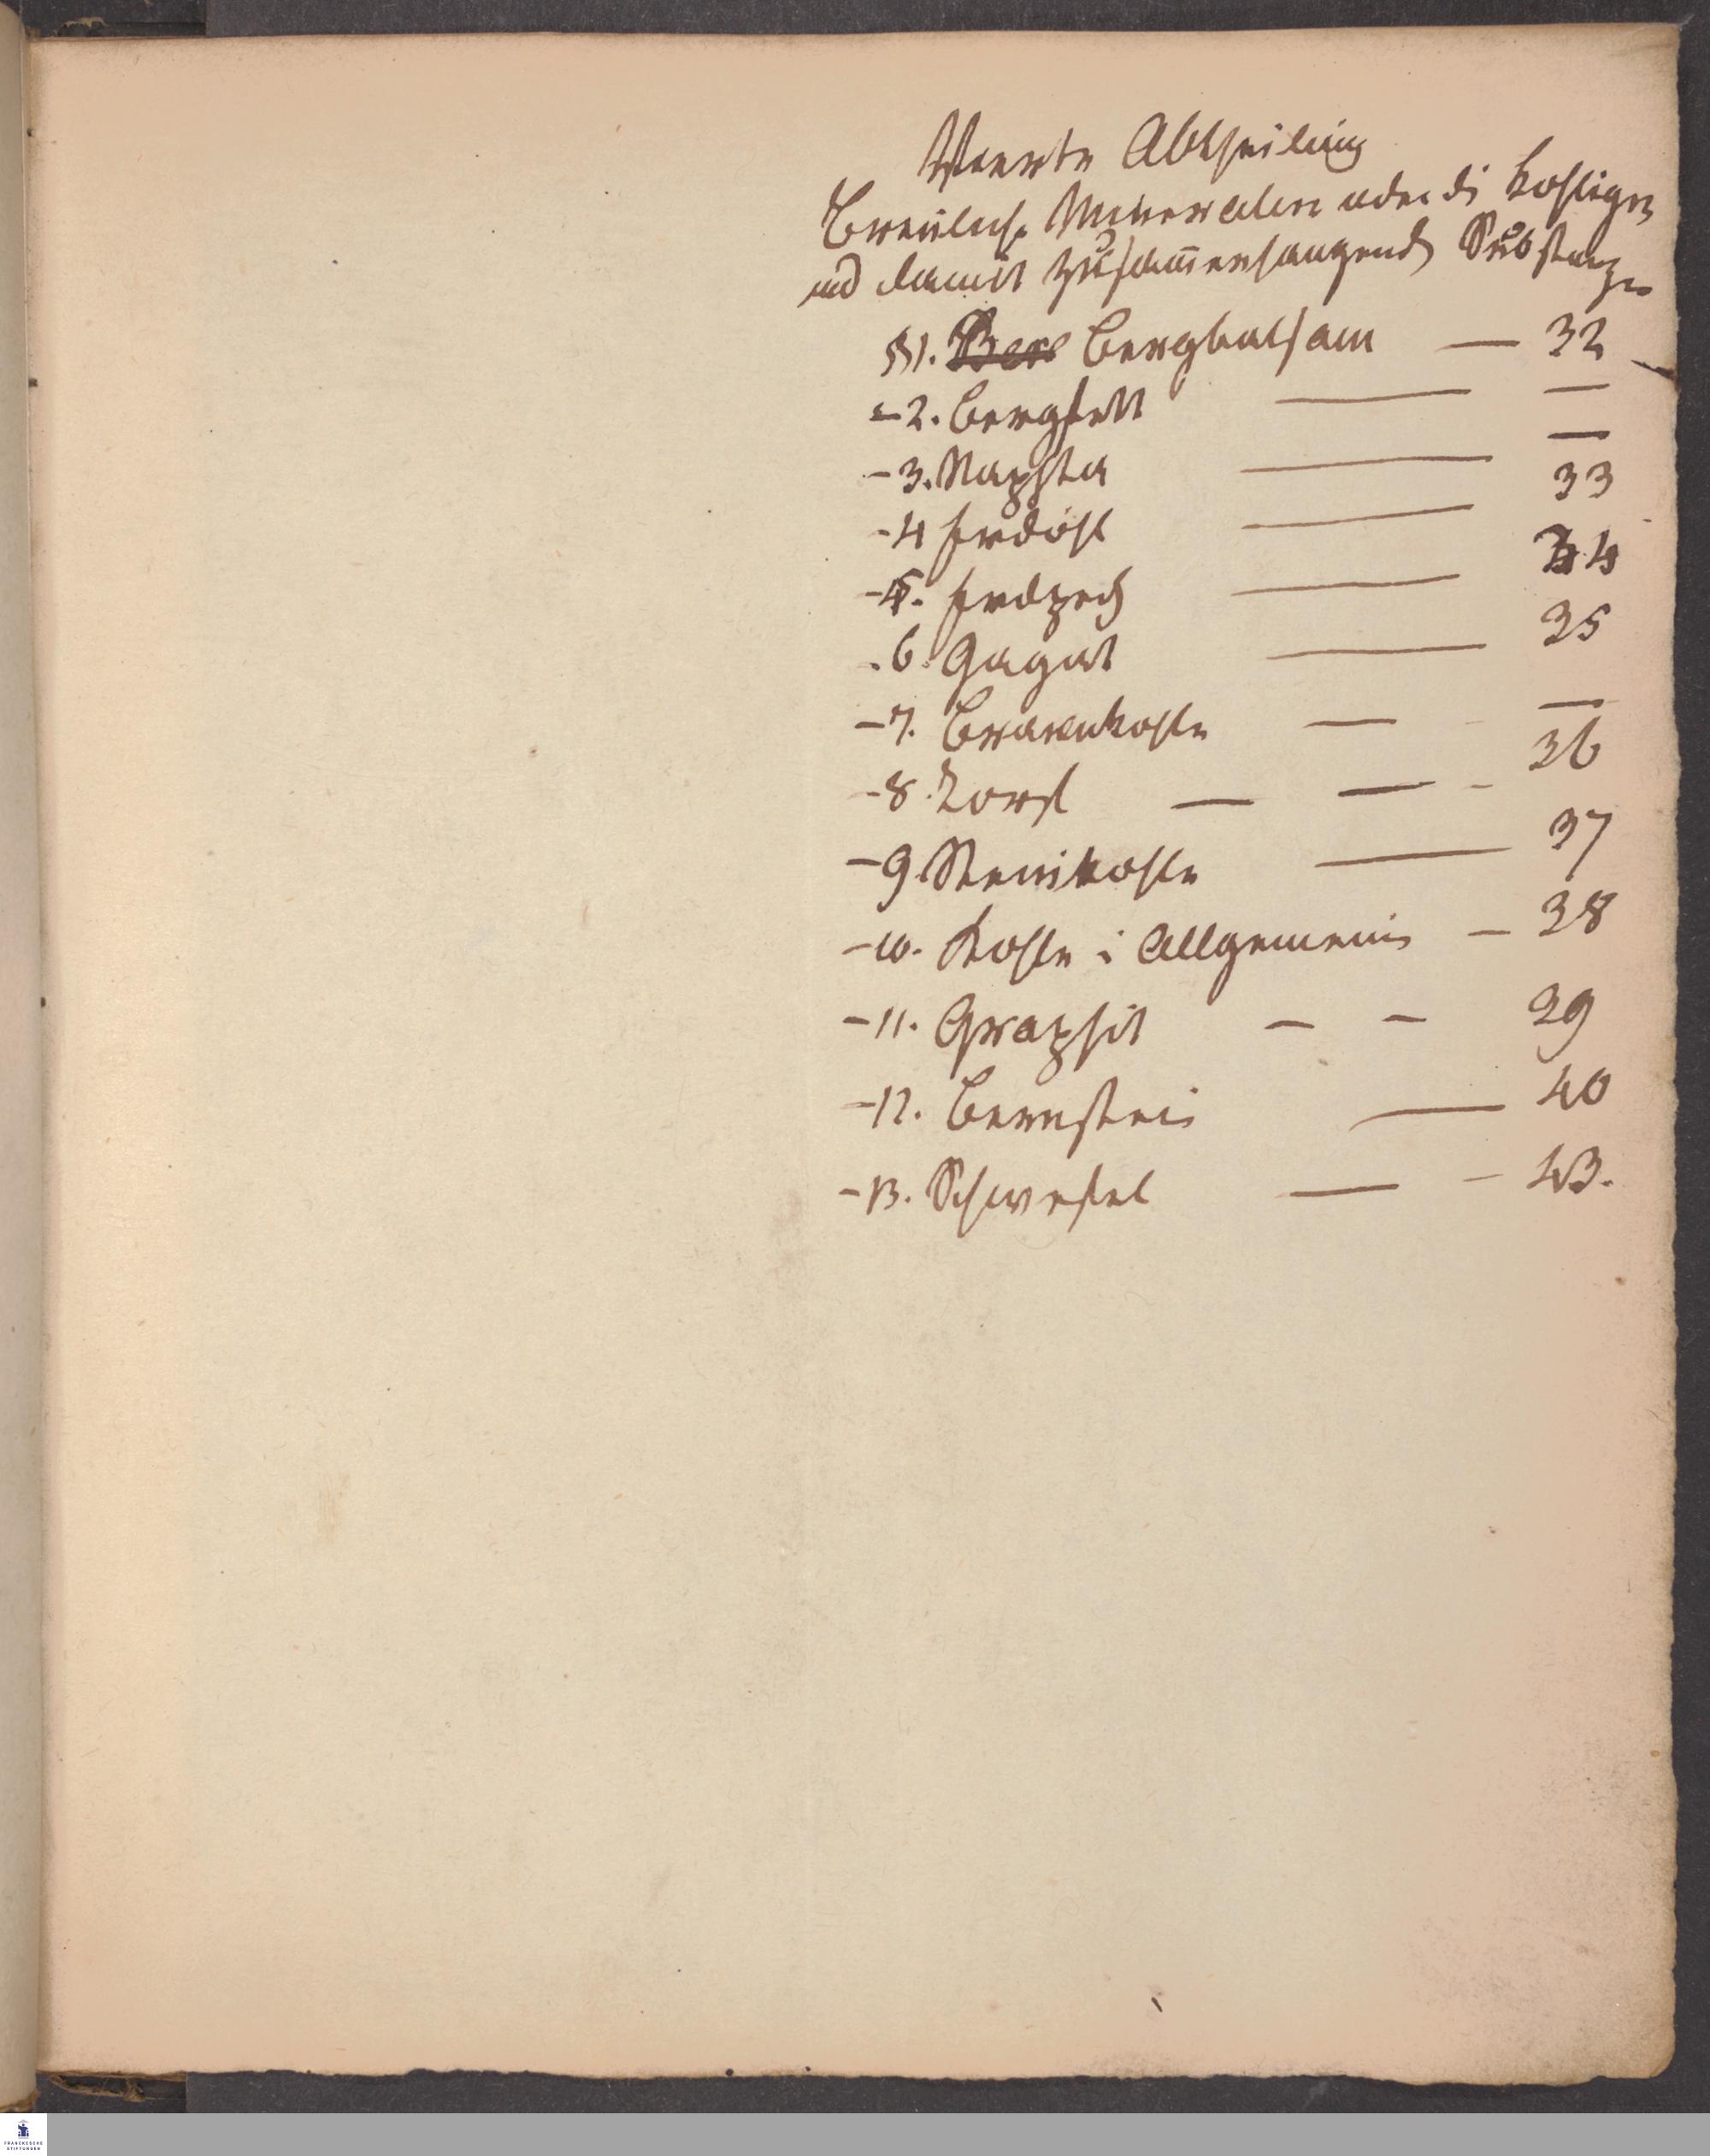 Vierte Abtheilung
Brennliche Mineralien oder die kohligen
und damit zusam̅enhangende Substanzen
§ 1. Bergbalsam — 32
- 2. Bergfett — —
- 3. Naphta — —
- 4 Erdöhl — 33
- 5. Erdpech — 34
- 6. Gagat — 35
- 7. Braunkohle — - —
- 8. Torf — — - 36
- 9. Steinkohle — 37
- 10. Kohle i Allgemein — 38
- 11. Graphit — — 39
- 12. Bernstein — 40
- 13. Schwefel — - 43.
FRANCKESCHE
STIFTUNGEN